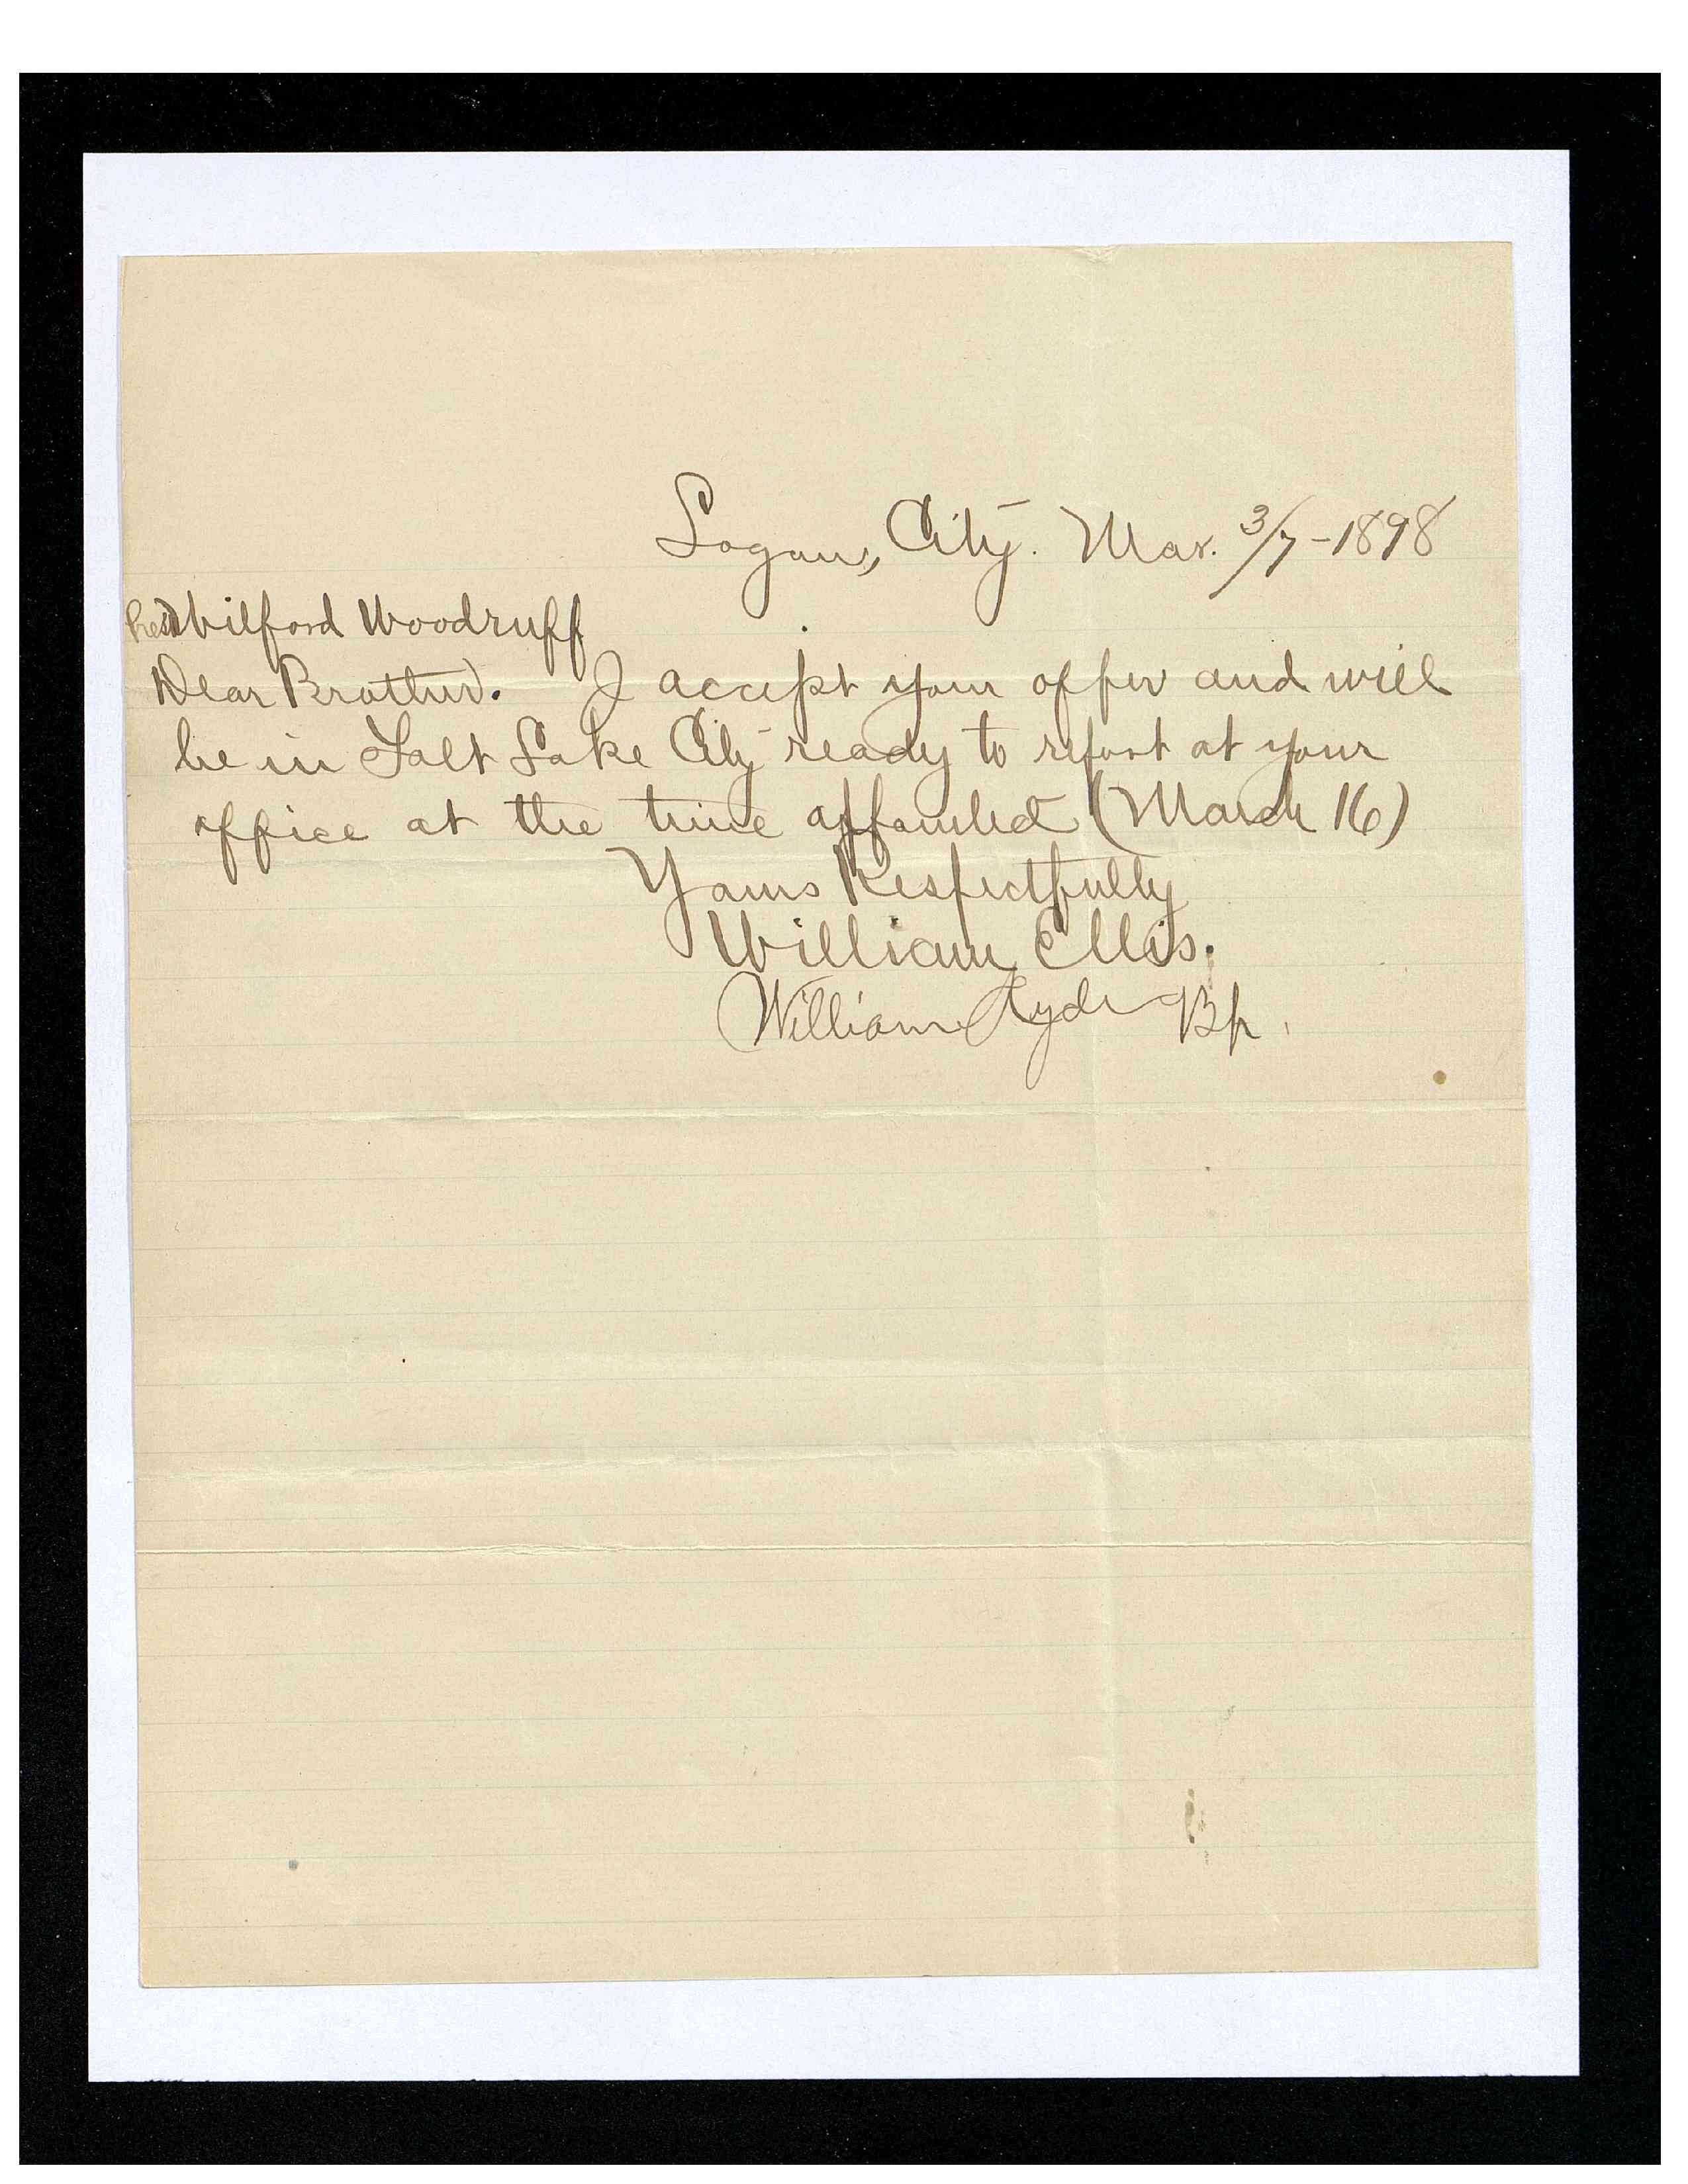 Logan, City. Mar. 3/7-1898
Pres Wilford Woodruff
Dear Brother. I accept your offer and will
be in Salt Lake City ready to report at your
office at the time appointed (March 16)
Yours Respectfully
William Ellis.
William Hyde Bp.